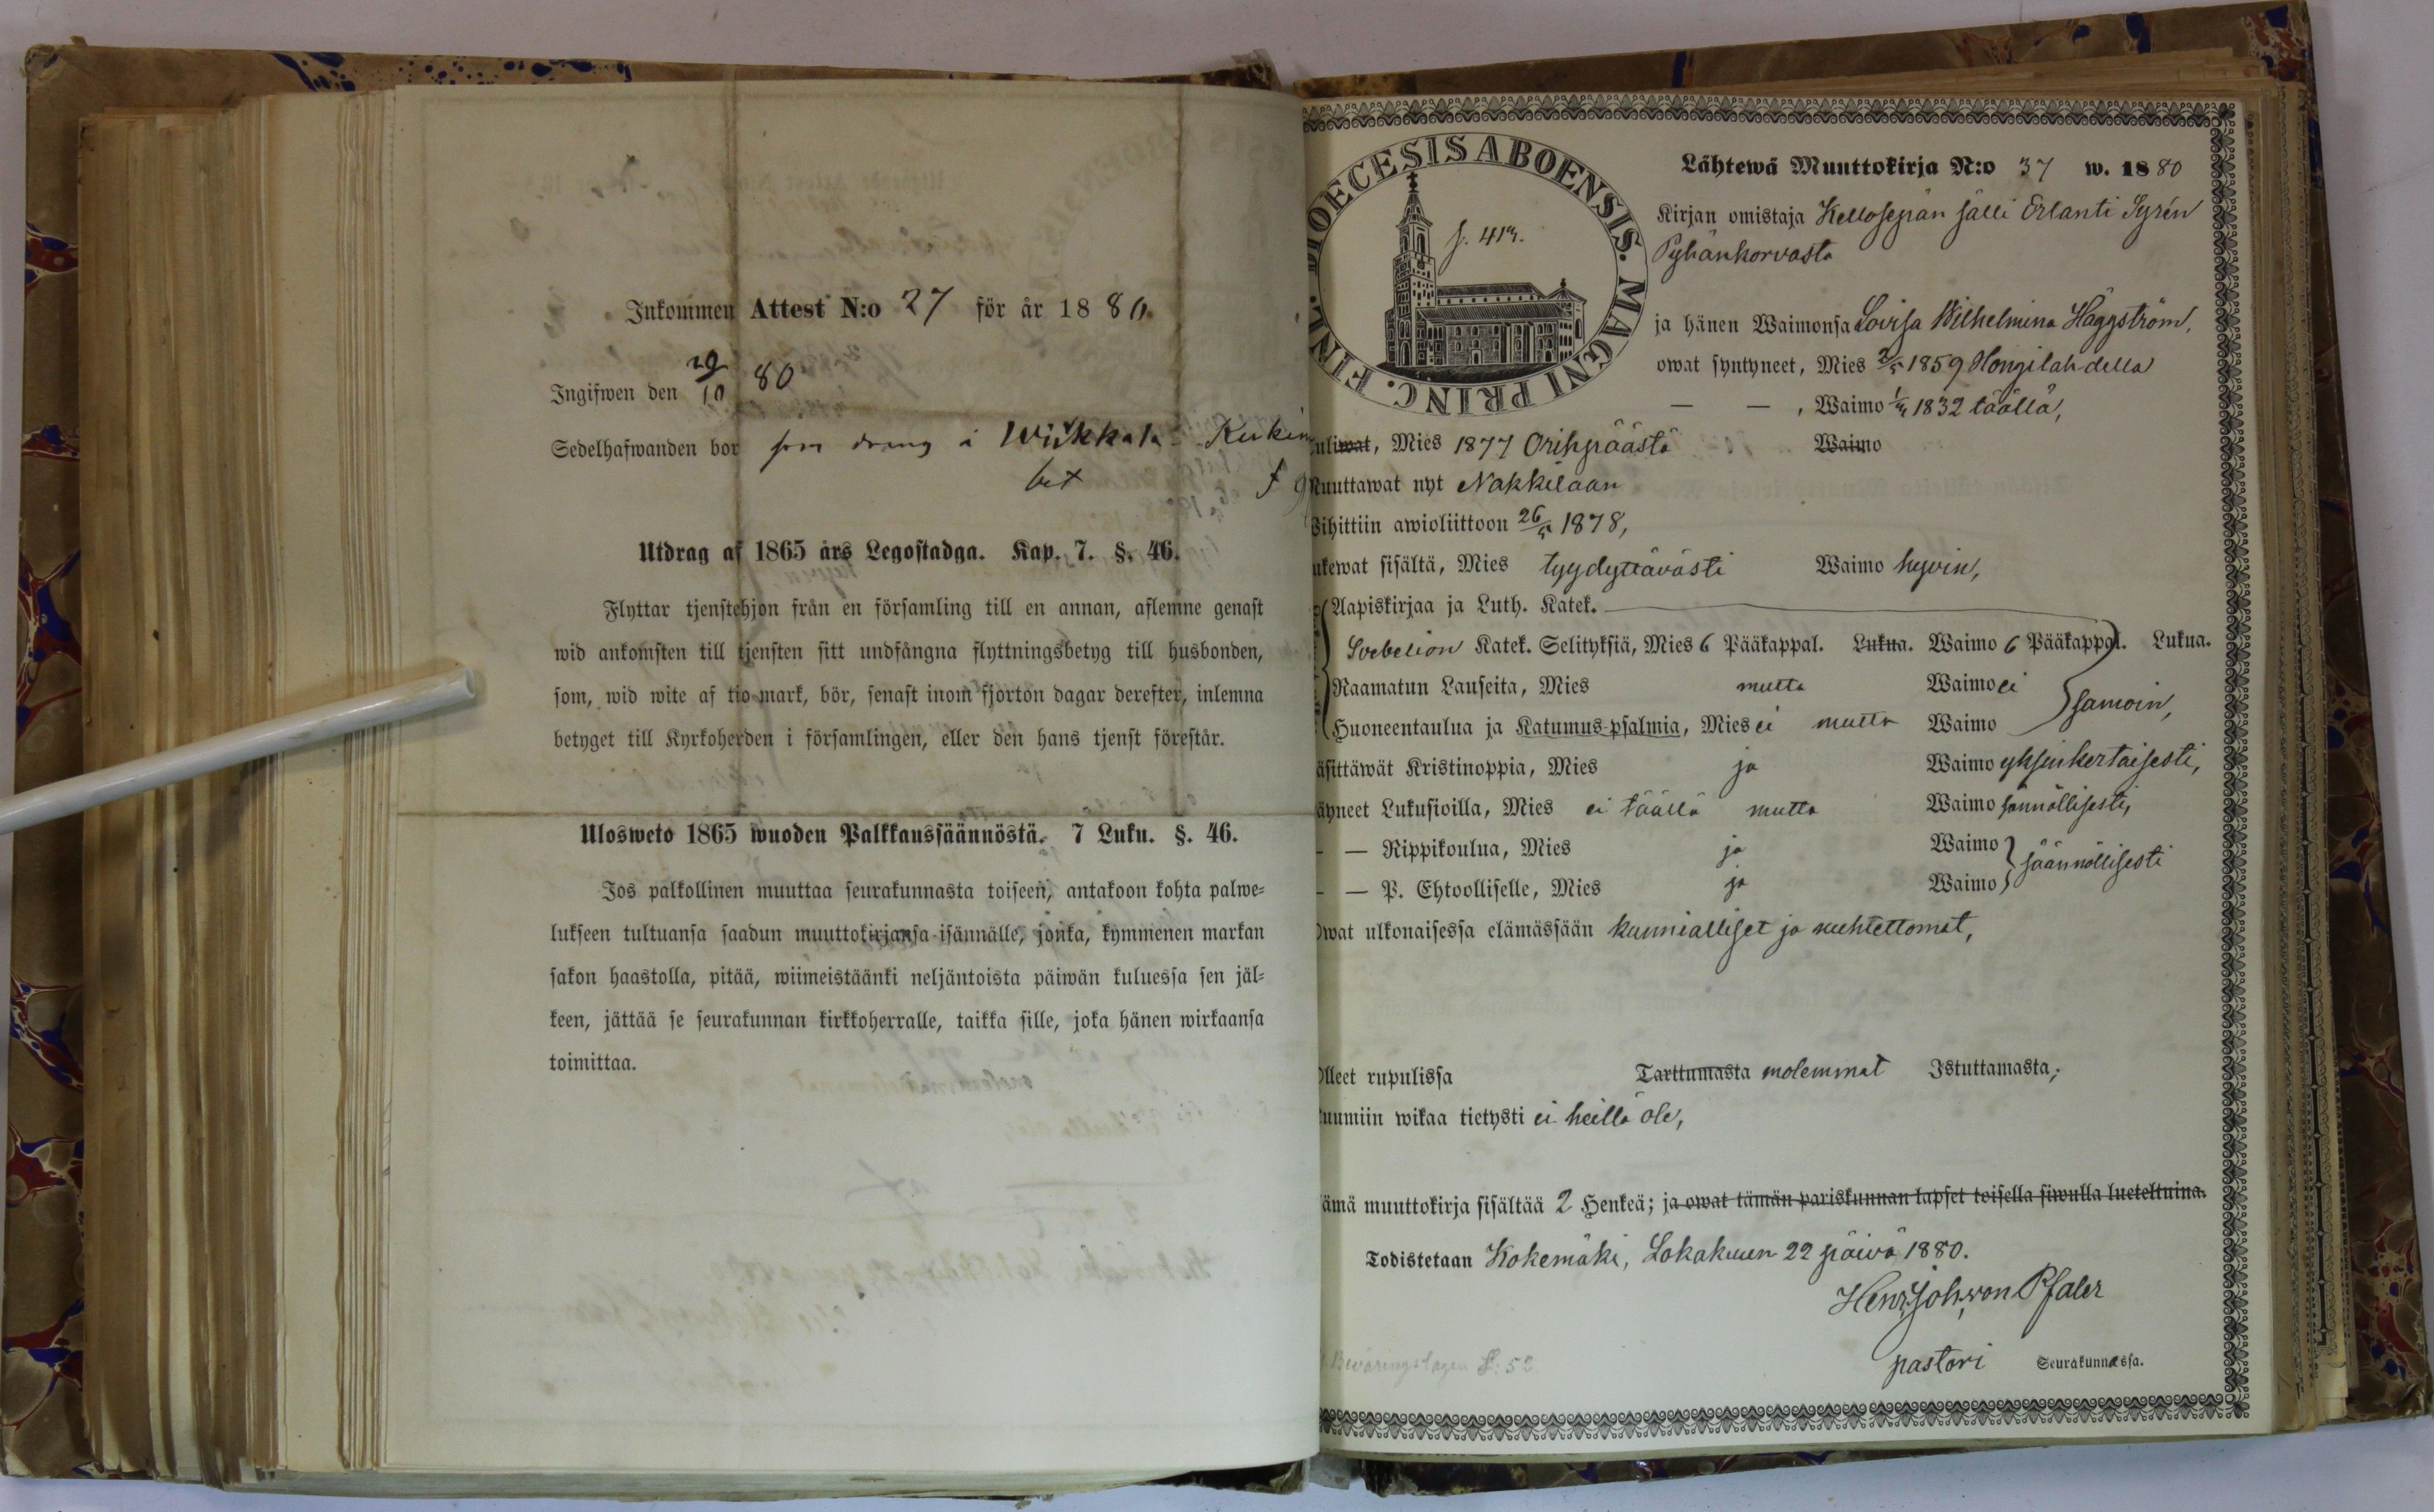 Inkommen Attest N:o 27 för år 1880.
Ingifwen den 29/10 80
Sedelhafwanden bor som dräng i Wiikkala
bet
Utdrag af 1865 års Legostadga. Kap. 7. §. 46.
Flyttar tjenstehjon från en församling till en annan, aflemne genast
wid ankomsten till tjensten sitt undfångna flyttningsbetyg till husbonden,
som, wid wite af tio mark, bör, senast inom fjorton dagar derefter, inlemna
betyget till Kyrkoherden i församlingen, eller den hans tjenst förestår.
Ulosweto 1865 wuoden Palkkaussäännöstä. 7 Luku. §. 46.
Jos palkollinen muuttaa seurakunnasta toiseen, antakoon kohta palwe-
lukseen tultuansa saadun muuttokirjansa isännälle, jonka, kymmenen markan
sakon haastolla, pitää, wiimeistäänki neljäntoista päiwän kuluessa sen jäl-
keen, jättää se seurakunnan kirkkoherralle, taikka sille, joka hänen wirkaansa
toimittaa.
DIOECESIS ABOENSIS. MAGNI PRINC. FINL.
Lähtewä Muuttokirja N:o 37 w. 1880
Kirjan omistaja Kellosepän sälli Erlanti Syrén
Pyhänkorvasta
ja hänen Waimonsa Lovisa Wilhelmina Häggström,
owat syntyneet, Mies 2/5 1859 Hongilahdella
— — , Waimo 1832 täällä,
uliwat, Mies 1877 Oripäästä Waimo
Muuttawat nyt Nakkilaan
Wihittiin awioliittoon 26/5 1878,
ukewat sisältä, Mies tyydyttävästi Waimo hyvin,
Aapiskirjaa ja Luth. Katek.
Svebelion Katek. Selityksiä, Mies 6 Pääkappal. Lukua. Waimo 6 Pääkappal. Lukua.
Raamatun Lauseita, Mies mutta Waimo ei
Huoneentaulua ja Katumus-psalmia, Mies ei mutta Waimo samoin,
äsittäwät Kristinoppia, Mies ja Waimo yksinkertaisesti,
äyneet Lukusioilla, Mies ei täällä mutta Waimo sännöllisesti,
— — Rippikoulua, Mies ja Waimo
— — P. Ehtoolliselle, Mies ja Waimo säännöllisesti
Owat ulkonaisessa elämässään kunnialliset ja nuhtettomat,
Olleet rupulissa Tarttumasta molemmat Istuttamasta;
uumiin wikaa tietysti ei heillä ole,
ämä muuttokirja sisältää 2 Henkeä; ja owat tämän pariskunnan lapset toisella siwulla lueteltuina.
Todistetaan Kokemäki, Lokakuun 22 päivä 1880.
Henr. Joh. von Pfaler
pastori Seurakunnassa.
Bevaringslagen §: 52